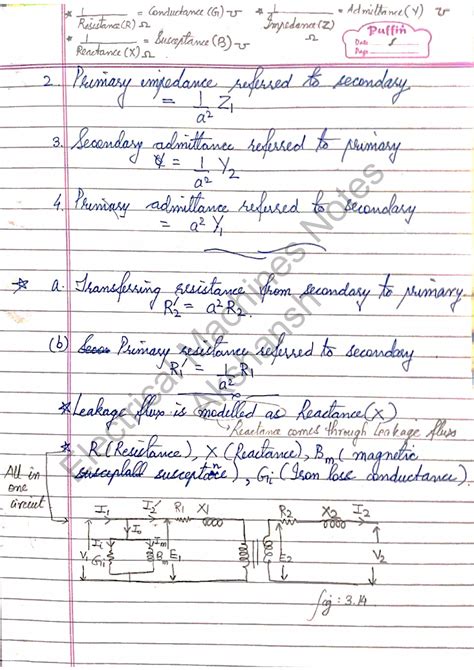 * 1/Resistance(R) Ω = Conductance (G) ℧
* 1/Impedance(Z) Ω = Admittance (Y) ℧
* 1/Reactance (X) Ω = Susceptance (B) ℧
Puffin
Date
Page
2. Primary impedance referred to secondary
= 1/a² Z₁
3. Secondary admittance referred to primary
= 1/a² Y₂
4. Primary admittance referred to secondary
= a² Y₁
* a. Transferring resistance from secondary to primary.
R₂' = a² R₂.
(b) Primary resistance referred to secondary
R₁' = 1/a² R₁
* Leakage flux is modelled as Reactance (X)
Reactance comes through Leakage flux
* R (Resistance), X (Reactance), Bm (magnetic
susceptance), Gi (Iron loss conductance).
All in
one
circuit
I₁ I₂' R₁ X₁ R₂ X₂ I₂
I₀
Ii Im
V₁ Gi Bm E₁ E₂ V₂
fig: 3.14
Electrical Machines Notes
Akshansh